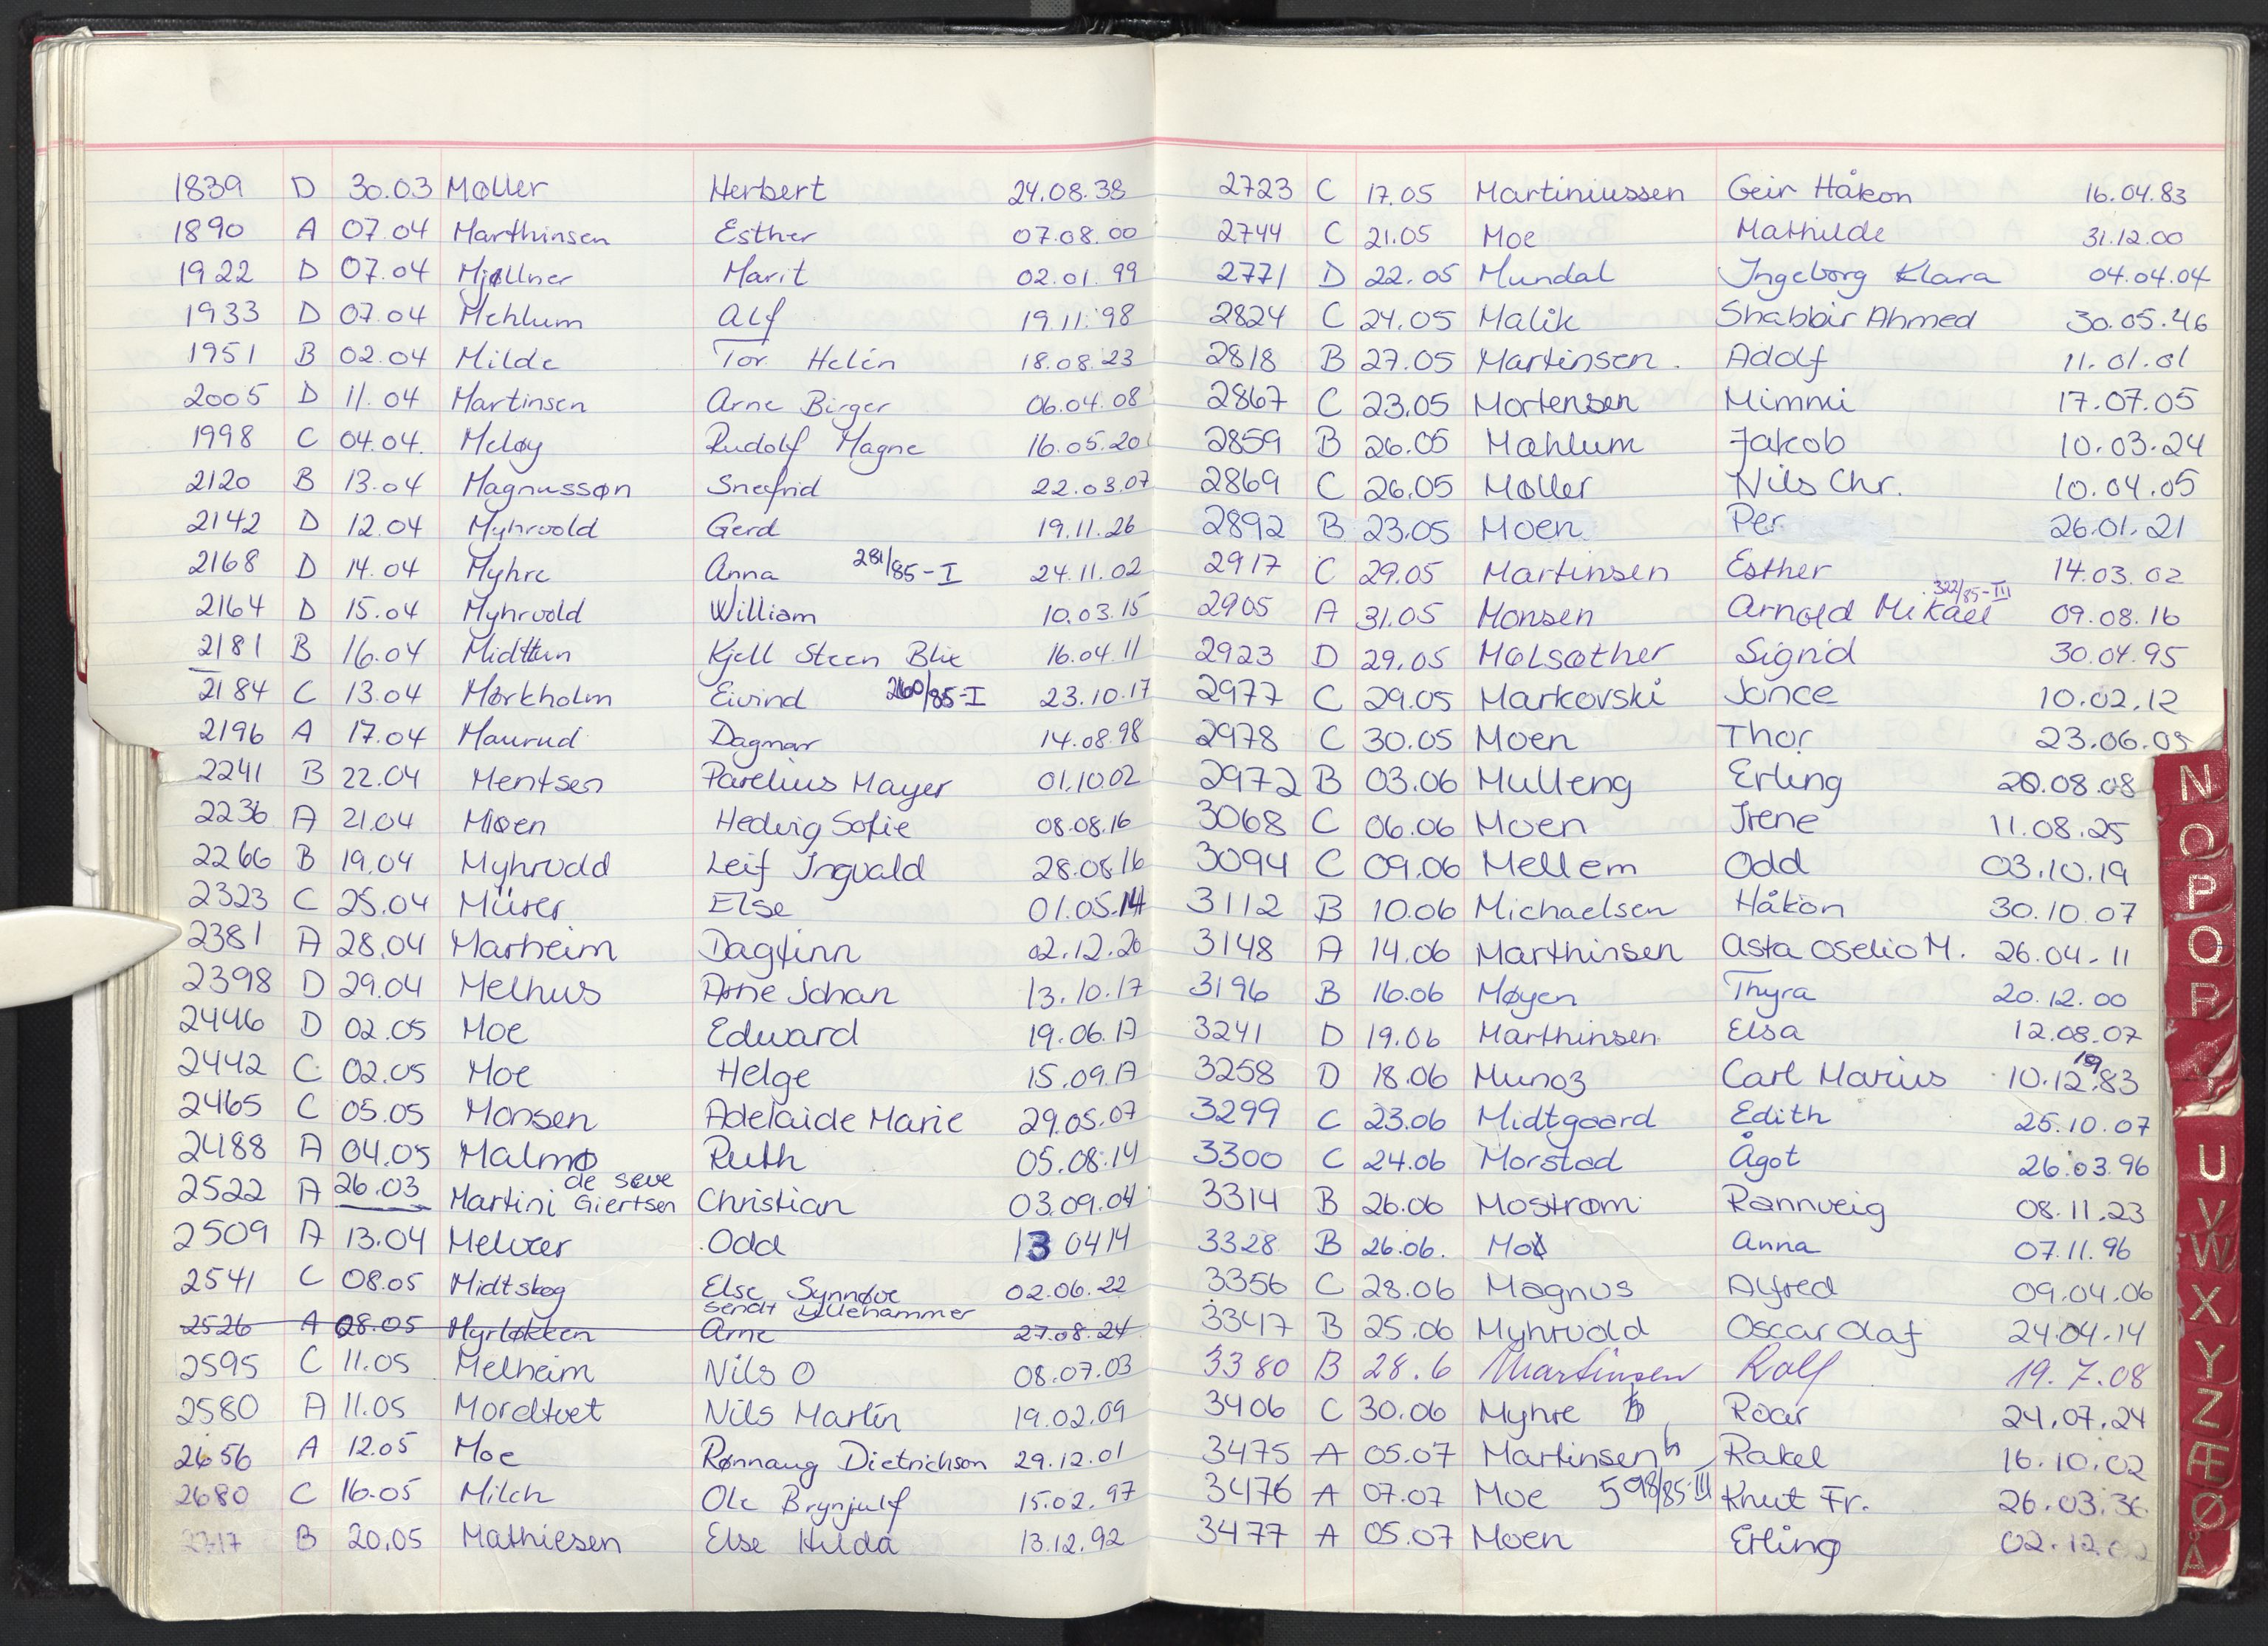 1839 D 30.03 Møller Herbert 24.08.38
1890 A 07.04 Marthinsen Esther 07.08.00
1922 D 07.04 Mjøllner Marit 02.01.99
1933 D 07.04 Mehlum Alf 19.11.98
1951 B 02.04 Milde Tor Helén 18.08.23
2005 D 11.04 Martinsen Arne Birger 06.04.08
1998 C 04.04. Meløy Rudolf Magne 16.05.20
2120 B 13.04 Magnussøn Snefrid 22.03.07
2142 D 12.04 Myhrvold Gerd 19.11.26
2168 D 14.04 Myhre Anna 281/85-I 24.11.02
2164 D 15.04 Myhrvold William 10.03.15
2181 B 16.04 Midttun Kjell Steen Blix 16.04.11
2184 C 13.04 Mørkholm Eivind 260/85-I 23.10.17
2196 A 17.04 Maurud Dagmar 14.08.98
2241 B 22.04 Mentsen Parelius Mayer 01.10.02
2236 A 21.04 Miøen Hedvig Sofie 08.08.16
2266 B 19.04 Myhrvold Leif Ingvald 28.08.16
2323 C 25.04 Mürer Else 01.05.14
2381 A 28.04 Marheim Dagfinn 02.12.20
2398 D 29.04 Melhus Arne Johan 13.10.17
2446 D 02.05 Moe Edward 19.06.17
2442 C 02.05 Moe Helge 15.09.17
2465 C 05.05 Monsen Adelaide Marie 29.05.07
2488 A 04.05 Malmø Ruth 05.08.14
de seve
2522 A 26.03 Martini Giertsen Christian 03.09.04
2509 A 13.04 Melvær Odd 13 04 14
2541 C 08.05 Midtskog Else Synnøve 02.06.22
sendt Lillehammer
2526 A 28.05 Myrløkken Arne 27.08.24
2595 C 11.05 Melheim Nils O 08.07.03
2580 A 11.05 Mordtvet Nils Martin 19.02.09
2656 A 12.05 Moe Rønnaug Dietrichson 29.12.01
2680 C 16.05 Milch Ole Brynjulf 15.02.97
2717 B 20.05 Mathiesen Else Hilda 13.12.92
2723 C 17.05 Martiniussen Geir Håkon 16.04.83
2744 C 21.05 Moe Mathilde 31.12.00
2771 D 22.05 Mundal Ingeborg Klara 04.04.04
2824 C 24.05 Malik Shabbir Ahmed 30.05.46
2818 B 27.05 Martinsen. Adolf 11.01.01
2867 C 23.05 Mortensen Mimmi 17.07.05
2859 B 26.05 Mæhlum Jakob 10.03.24
2869 C 26.05 Møller Nils Chr. 10.04.05
2892 B 23.05 Moen Per 26.01.21
2917 C 29.05 Martinsen Esther 14.03.02
322/85-III
2905 A 31.05 Monsen Arnold Mikael 09.08.16
2923 D 29.05 Mølsæther Sigrid 30.04.95
2977 C 29.05 Markovski Jonce 10.02.12
2978 C 30.05 Moen Thor 23.06.05
2972 B 03.06 Mulleng Erling 20.08.08
3068 C 06.06 Moen Irene 11.08.25
3094 C 09.06 Mellem Odd 03.10.19
3112 B 10.06 Michaelsen Håkon 30.10.07
3148 A 14.06 Marthinsen Asta Oselio M. 26.04.11
3196 B 16.06 Møyen Thyra 20.12.00
3241 D 19.06 Marthinsen Elsa 12.08.07
19
3258 D 18.06 Munoz Carl Marius 10.12.83
3299 C 23.06 Midtgaard Edith 25.10.07
3300 C 24.06 Morstad Ågot 26.03.96
3314 B 26.06 Mostrøm Rannveig 08.11.23
3328 B 26.06. Anna 07.11.96
3356 C 28.06 Magnus Alfred 09.04.06
3347 B 25.06 Myhrvold Oscar Olaf 24.04.14
3380 B 28.6 Martinsen Rolf 19.7.08
3406 C 30.06 Myhre Roar 24.07.24
3475 A 05.07 Martinsen Rakel 16.10.02
3476 A 07.07 Moe 598/85-III Knut Fr. 26.03.36
3477 A 05.07 Moen Erling 02.12.02
N
O
P
Q
R
U
V
W
X
Y
Z
Æ
Ø
Å